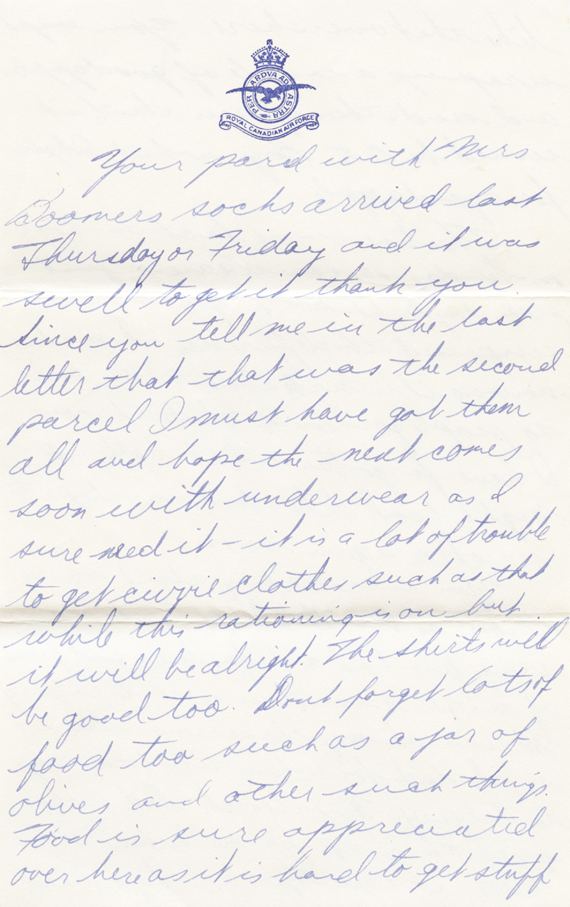 PER ARDVA AD ASTRA
ROYAL CANADIAN AIR FORCE
Your parcl with Mrs
Boomers socks arrived last
Thursday or Friday and it was
swell to get it thank you.
Since you tell me in the last
letter that that was the second
parcel I must have got them
all and hope the next comes
soon with underwear as I
sure need it - it is a lot of trouble
to get civvie clothes such as that
while this rationing is on but
it will be alright. The shirts will
be good too. Dont forget lots of
food too such as a jar of
olives and other such things.
Food is sure appreciated
over here as it is hard to get stuff